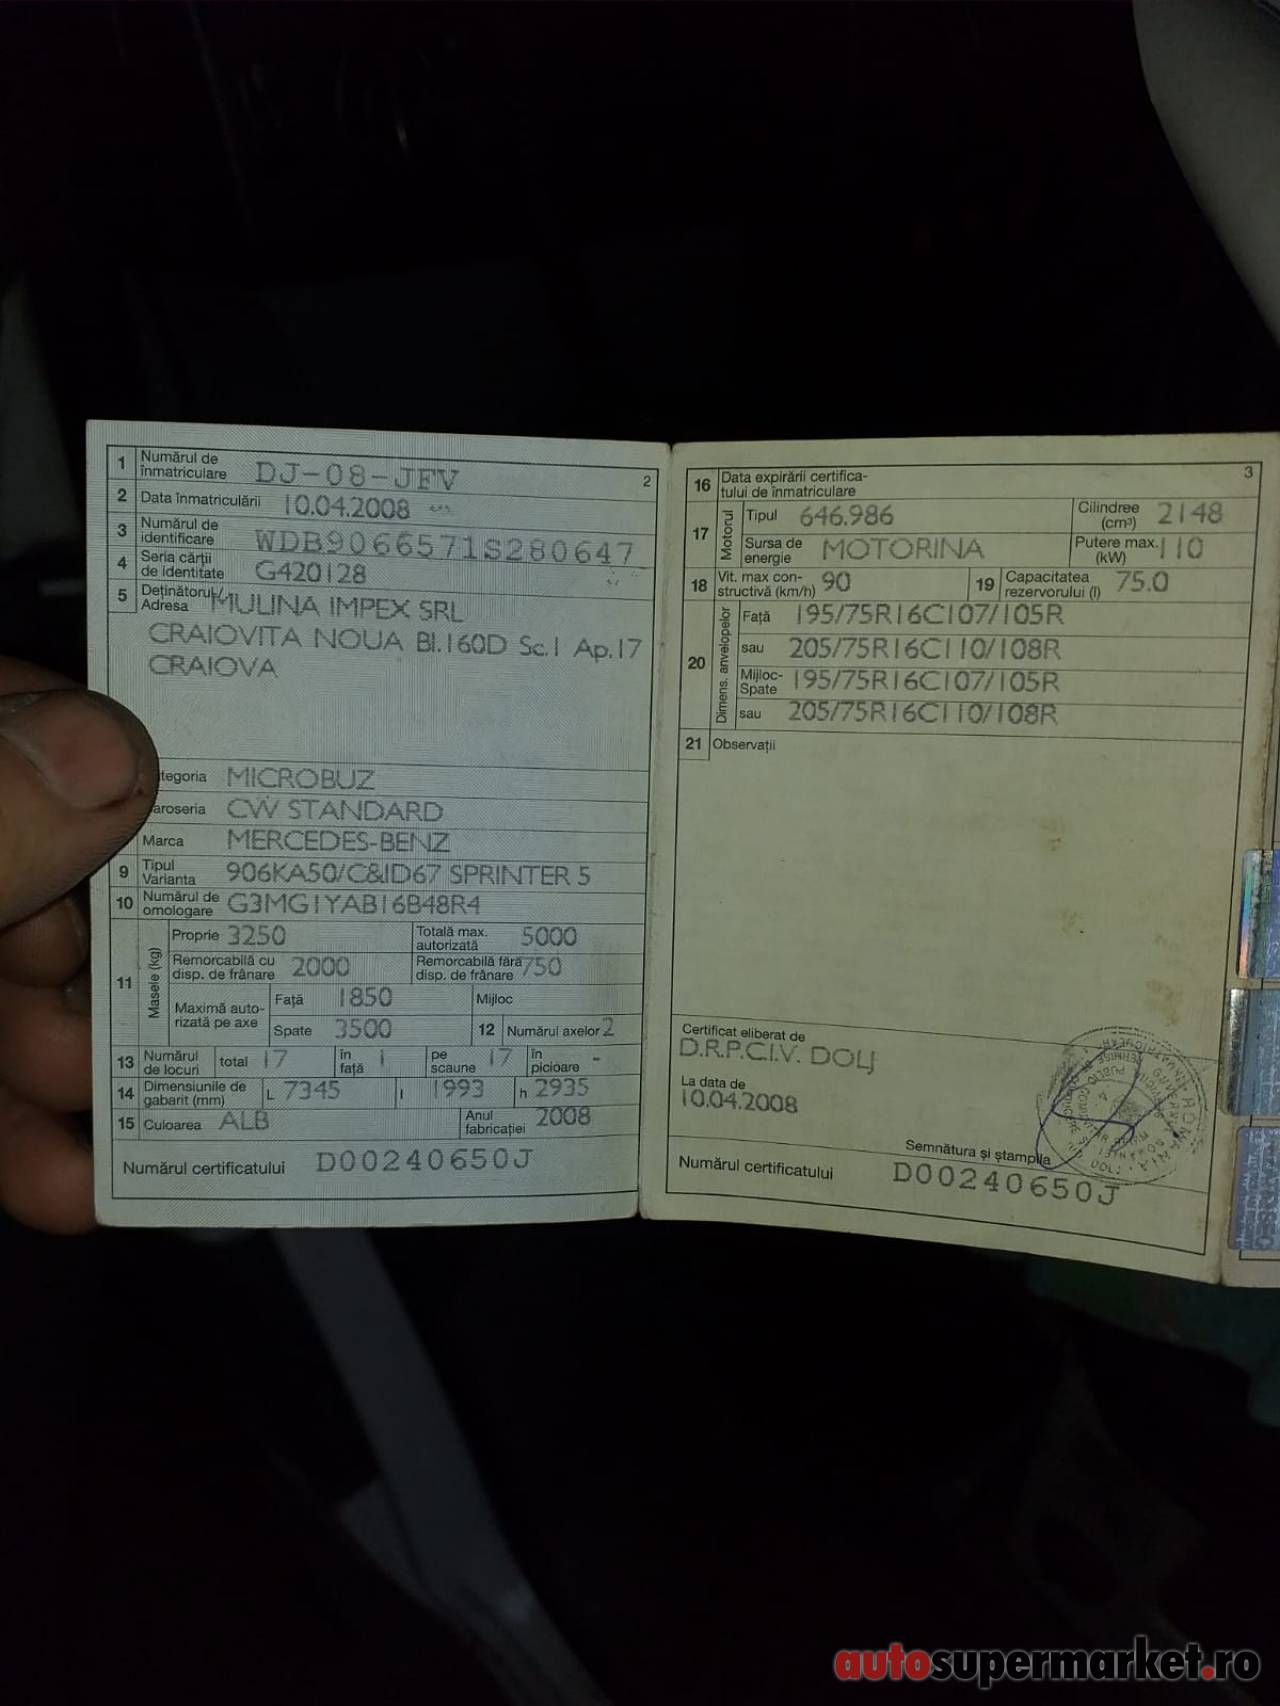 2
1 Numărul de înmatriculare DJ-08-JFV
2 Data înmatriculării 10.04.2008
3 Numărul de identificare WDB9066571S280647
4 Seria cărții de identitate G420128
5 Deținătorul/ Adresa MULINA IMPEX SRL
CRAIOVITA NOUA Bl.160D Sc.1 Ap.17
CRAIOVA
tegoria MICROBUZ
aroseria CW STANDARD
Marca MERCEDES-BENZ
9 Tipul Varianta 906KA50/C&ID67 SPRINTER 5
10 Numărul de omologare G3MG1YAB16B48R4
11 Masele (kg)
Proprie 3250 Totală max. autorizată 5000
Remorcabilă cu disp. de frânare 2000 Remorcabilă fără disp. de frânare 750
Maximă autorizată pe axe Față 1850 Mijloc
Spate 3500 12 Numărul axelor 2
13 Numărul de locuri total 17 în față 1 pe scaune 17 în picioare -
14 Dimensiunile de gabarit (mm) L 7345 l 1993 h 2935
15 Culoarea ALB Anul fabricației 2008
Numărul certificatului D00240650J
3
16 Data expirării certifica-
tului de înmatriculare
17 Motorul Tipul 646.986 Cilindree (cm³) 2148
Sursa de energie MOTORINA Putere max. (kW) 110
18 Vit. max con-
structivă (km/h) 90 19 Capacitatea rezervorului (l) 75.0
20 Dimens. anvelopelor
Față 195/75R16C107/105R
sau 205/75R16C110/108R
Mijloc-
Spate 195/75R16C107/105R
sau 205/75R16C110/108R
21 Observații
Certificat eliberat de
D.R.P.C.I.V. DOLJ
La data de
10.04.2008
Semnătura și ștampila
Numărul certificatului D00240650J
autosupermarket.ro